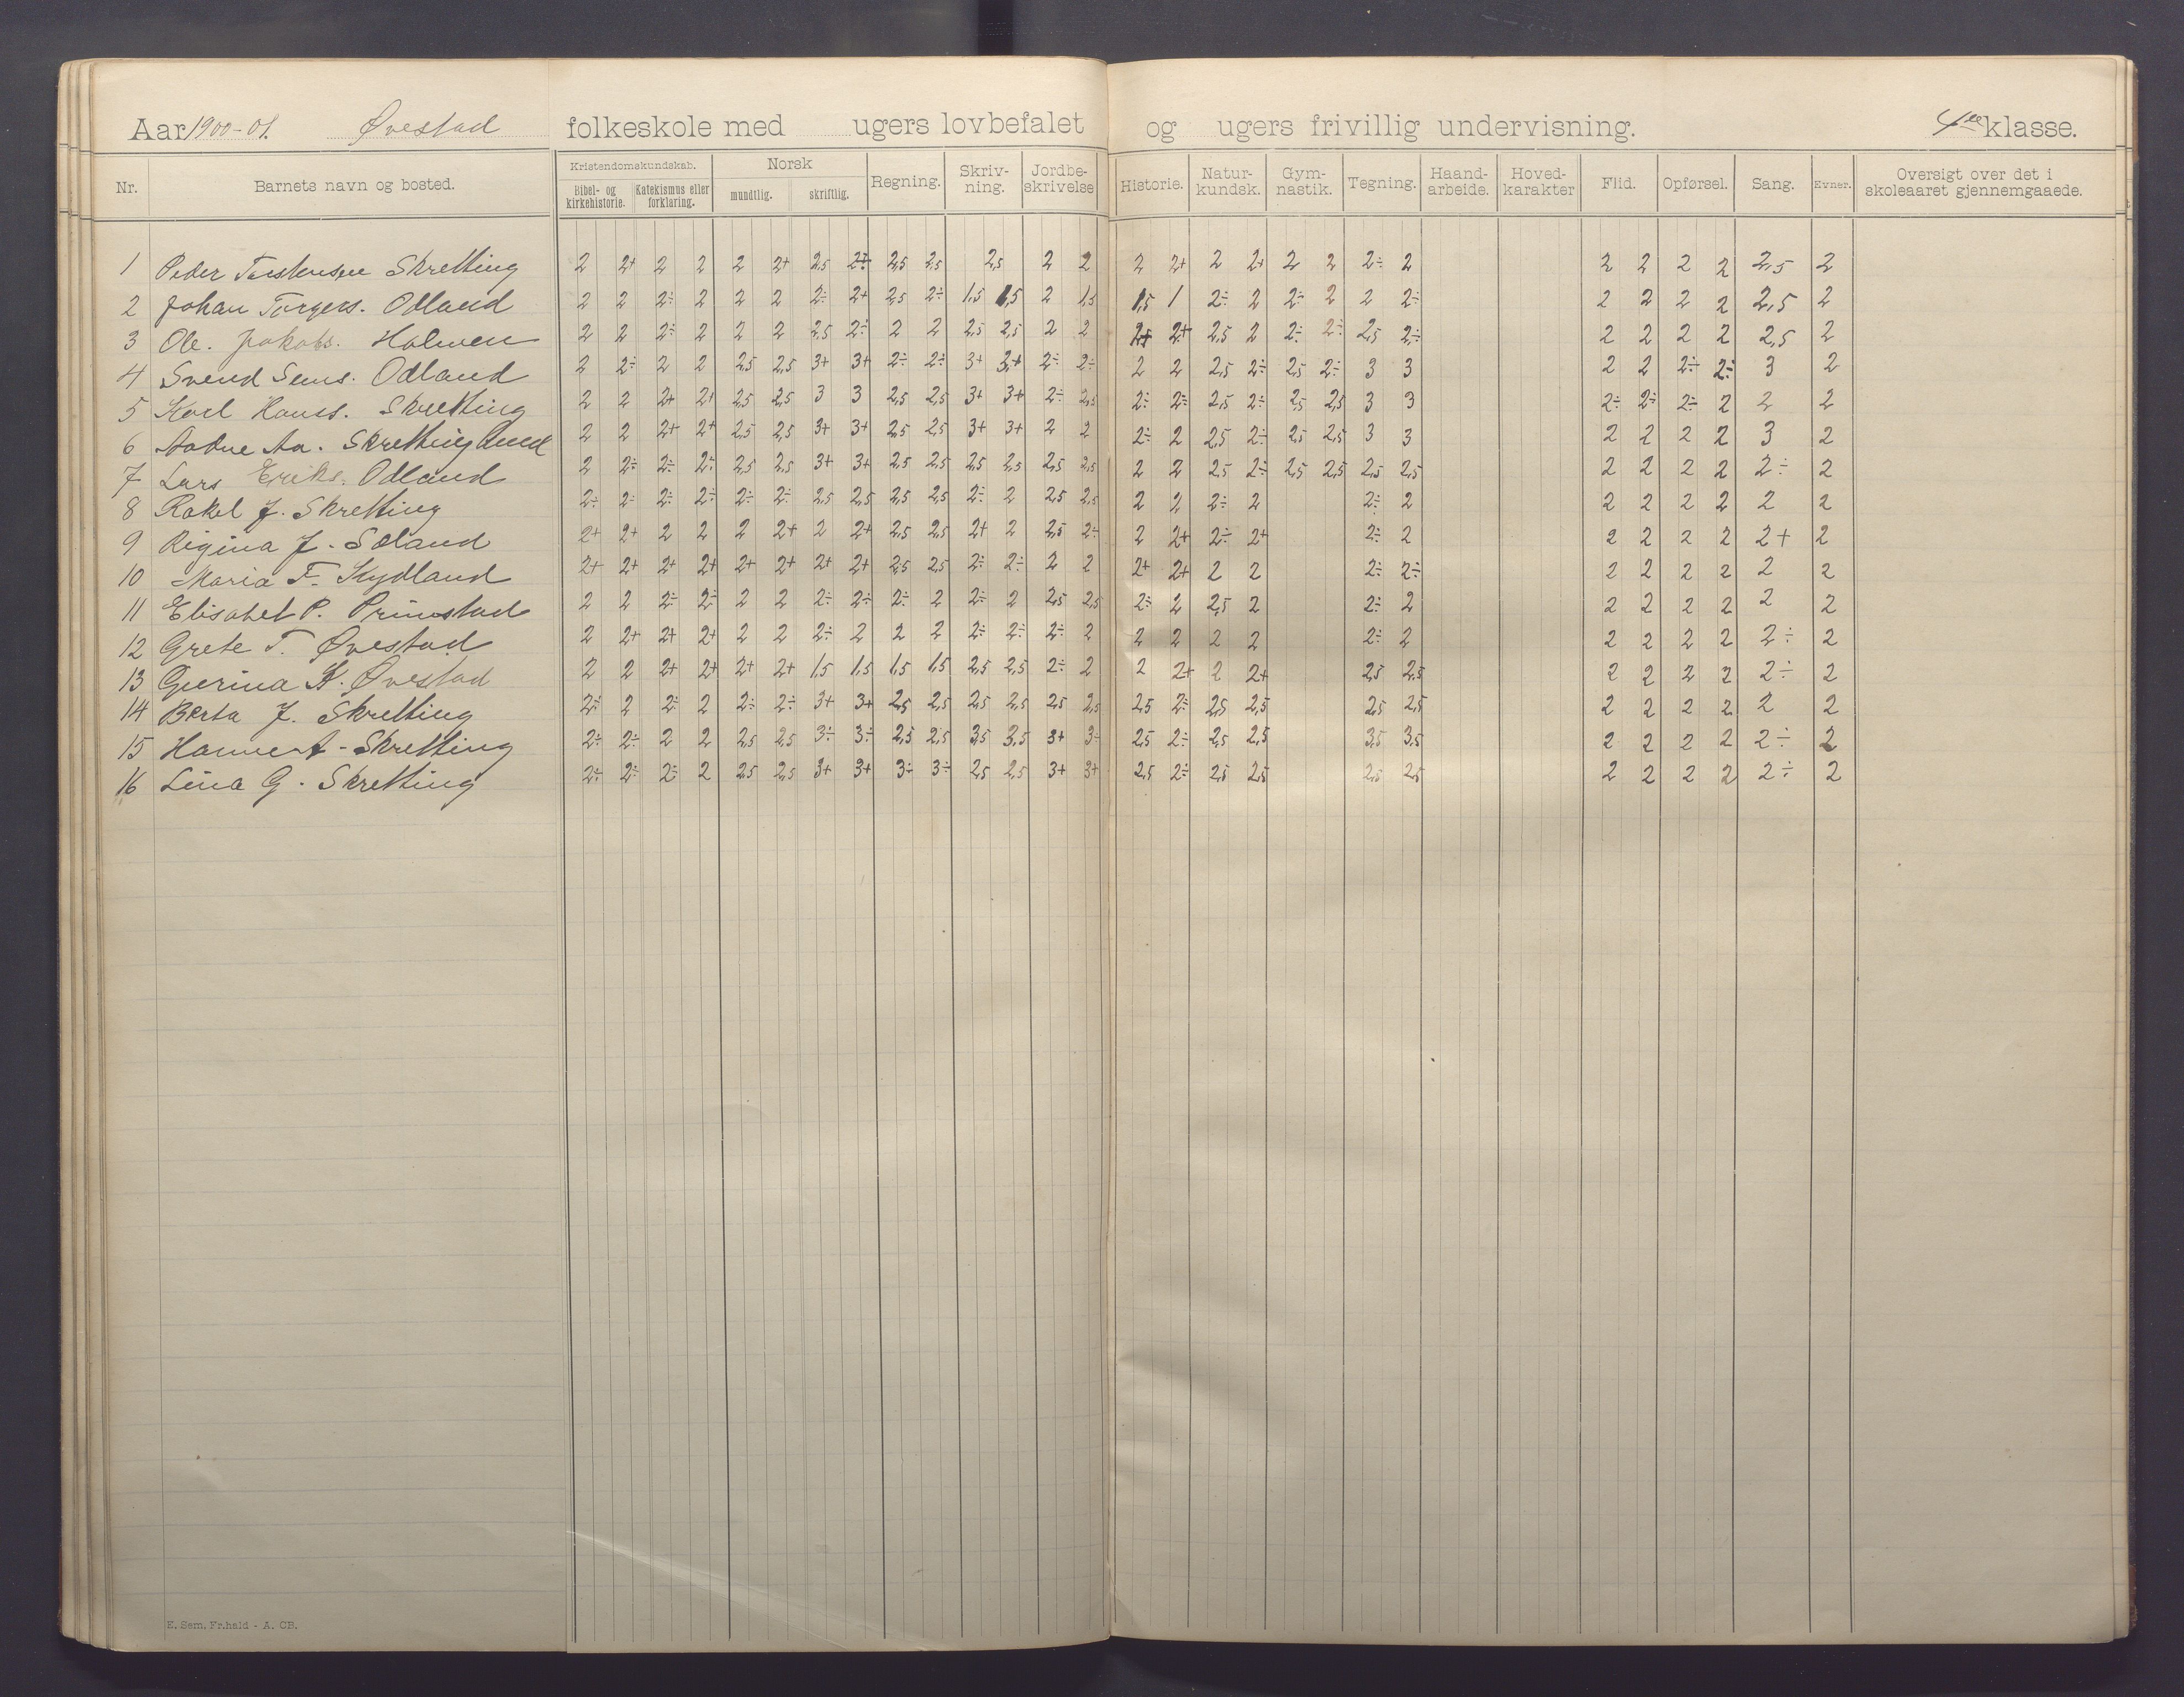 Aar 1900-01. Øvestad folkeskole med ugers lovbefalet og ugers frivillig undervisning. 4de klasse.
Nr. Barnets navn og bosted. Kristendomskundskab. Bibel- og kirkehistorie. Katekismus eller forklaring. Norsk mundtlig. skriftlig. Regning. Skriv-ning. Jordbe-skrivelse Historie. Natur-kundsk. Gym-nastik. Tegning. Haand-arbeide. Hoved-karakter Flid. Opførsel. Sang. Evner. Oversigt over det i skoleaaret gjennemgaaede.
1 Peder Torstensen Skretting 2 2+ 2 2 2 2+ 2,5 2÷ 2,5 2,5 2,5 2 2 2 2+ 2 2+ 2 2 2÷ 2 2 2 2 2 2,5 2
2 Johan Torgers. Odland 2 2 2÷ 2 2 2 2÷ 2+ 2,5 2÷ 1,5 1,5 2 1,5 1,5 1 2÷ 2 2÷ 2 2 2÷ 2 2 2 2 2,5 2
3 Ole. Jakobs. Holmen 2 2 2÷ 2 2 2 2,5 2÷ 2 2 2,5 2,5 2 2 2+ 2+ 2,5 2 2÷ 2÷ 2,5 2÷ 2 2 2 2 2,5 2
4 Svend Sems. Odland 2 2÷ 2 2 2,5 2,5 3+ 3+ 2÷ 2÷ 3+ 3+ 2÷ 2÷ 2 2 2,5 2÷ 2,5 2÷ 3 3 2 2 2÷ 2÷ 3 2
5 Karl Hanss. Skretting 2 2 2+ 2+ 2,5 2,5 3 3 2,5 2,5 3+ 3+ 2÷ 2,5 2÷ 2÷ 2,5 2÷ 2,5 2,5 3 3 2÷ 2÷ 2÷ 2 2 2
6 Aadne Aa. Skrettingland 2 2 2+ 2+ 2,5 2,5 3+ 3+ 2,5 2,5 3+ 3+ 2 2 2÷ 2 2,5 2÷ 2,5 2,5 3 3 2 2 2 2 3 2
7 Lars Eriks. Odland 2 2÷ 2÷ 2÷ 2,5 2,5 3+ 3+ 2,5 2,5 2,5 2,5 2,5 2,5 2 2 2,5 2÷ 2,5 2,5 2,5 2,5 2 2 2 2 2÷ 2
8 Rakel J. Skretting 2÷ 2÷ 2÷ 2÷ 2÷ 2÷ 2,5 2,5 2,5 2,5 2÷ 2 2,5 2,5 2 2 2÷ 2 2÷ 2 2 2 2 2 2 2
9 Rigina J. Soland 2+ 2+ 2 2 2 2+ 2 2+ 2,5 2,5 2+ 2 2,5 2÷ 2 2+ 2÷ 2+ 2÷ 2 2 2 2 2 2+ 2
10 Maria F. Kydland 2+ 2+ 2+ 2+ 2+ 2+ 2+ 2+ 2,5 2,5 2÷ 2÷ 2 2 2+ 2+ 2 2 2÷ 2÷ 2 2 2 2 2 2
11 Elisabet P. Primstad 2 2 2÷ 2÷ 2 2 2÷ 2÷ 2÷ 2 2÷ 2 2,5 2,5 2÷ 2 2,5 2 2÷ 2 2 2 2 2 2 2
12 Grete T. Øvestad 2 2+ 2+ 2+ 2 2 2÷ 2 2 2 2÷ 2÷ 2÷ 2 2 2 2 2 2÷ 2 2 2 2 2 2÷ 2
13 Gurina K. Øvestad 2 2 2+ 2+ 2+ 2+ 1,5 1,5 1,5 1,5 2,5 2,5 2÷ 2 2 2+ 2 2+ 2,5 2,5 2 2 2 2 2÷ 2
14 Berta J. Skretting 2÷ 2 2÷ 2 2÷ 2÷ 3+ 3+ 2,5 2,5 2,5 2,5 2,5 2,5 2,5 2÷ 2,5 2,5 2,5 2,5 2 2 2 2 2 2
15 Hanne A - Skretting 2÷ 2÷ 2 2 2,5 2,5 3÷ 3÷ 2,5 2,5 3,5 3,5 3+ 3÷ 2,5 2÷ 2,5 2,5 3,5 3,5 2 2 2 2 2÷ 2
16 Lina G. Skretting 2÷ 2÷ 2÷ 2 2,5 2,5 3+ 3+ 3÷ 3÷ 2,5 2,5 3+ 3+ 2,5 2÷ 2,5 2,5 2,5 2,5 2 2 2 2 2÷ 2
E. Sem, Fr.hald - A. CB.